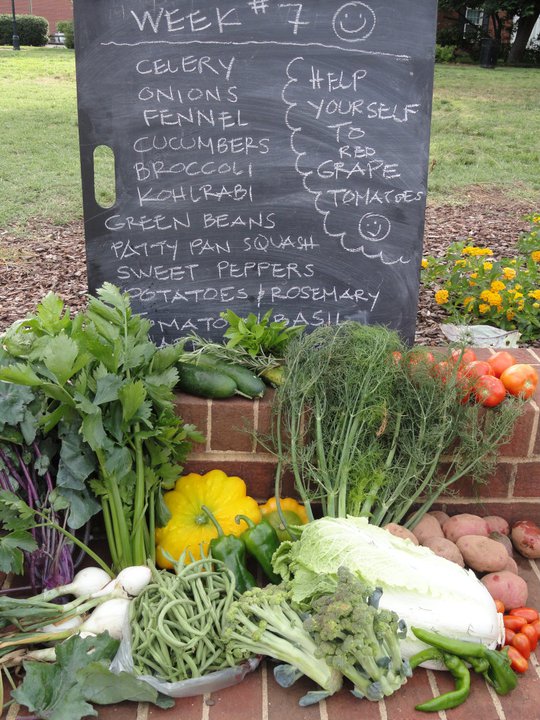 WEEK #7
CELERY
ONIONS
FENNEL
CUCUMBERS
BROCCOLI
KOHLRABI
GREEN BEANS
PATTY PAN SQUASH
SWEET PEPPERS
POTATOES & ROSEMARY
TOMATO BASIL
HELP
YOURSELF
TO
RED
GRAPE
TOMATOES